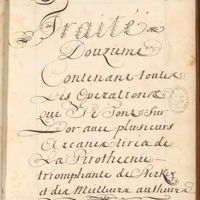 Traité
Douzume
Contenant toutes
Les Operations
qui Se font Sur
Lor avec plusieurs
Arcanes tiréz de
La Pirothecnie
triomphante de
& des Meilleurs autheurs